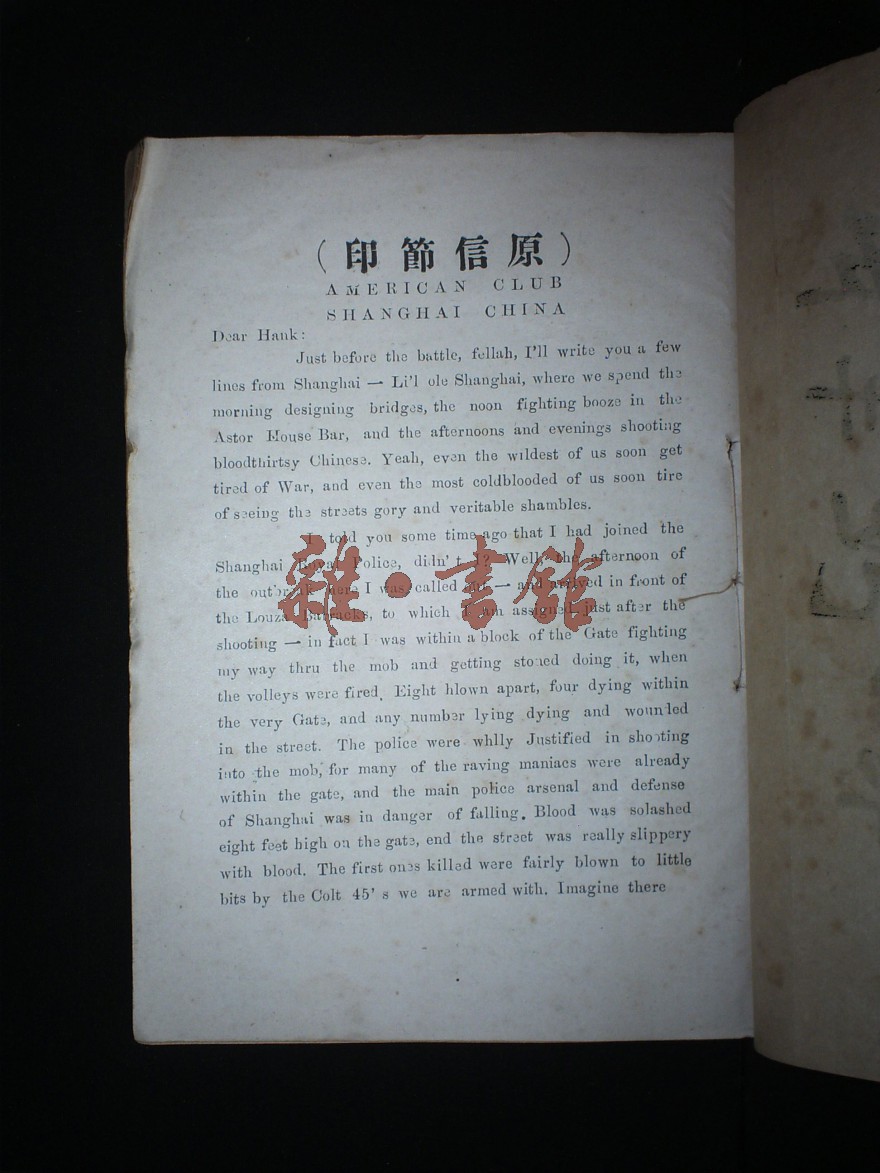 （印節信原）
AMERICAN CLUB
SHANGHAI CHINA
Dear Hank:
Just before the battle, fellah, I'll write you a few
lines from Shanghai — Li'l ole Shanghai, where we spend the
morning designing bridges, the noon fighting booze in the
Astor House Bar, and the afternoons and evenings shooting
bloodthirtsy Chinese. Yeah, even the wildest of us soon get
tired of War, and even the most coldblooded of us soon tire
of seeing the streets gory and veritable shambles.
I told you some time ago that I had joined the
Shanghai Royal Police, didn't I? Well the afternoon of
the outbreak here I was called out — and arrived in front of
the Louza Barracks, to which I am assigned just after the
shooting — in fact I was within a block of the Gate fighting
my way thru the mob and getting stoned doing it, when
the volleys were fired. Eight hlown apart, four dying within
the very Gate, and any number lying dying and wounded
in the street. The police were whlly Justified in shooting
into the mob, for many of the raving maniacs were already
within the gate, and the main police arsenal and defense
of Shanghai was in danger of falling. Blood was solashed
eight feet high on the gate, end the street was really slippery
with blood. The first ones killed were fairly blown to little
bits by the Colt 45' s we are armed with. Imagine there
雜·書館